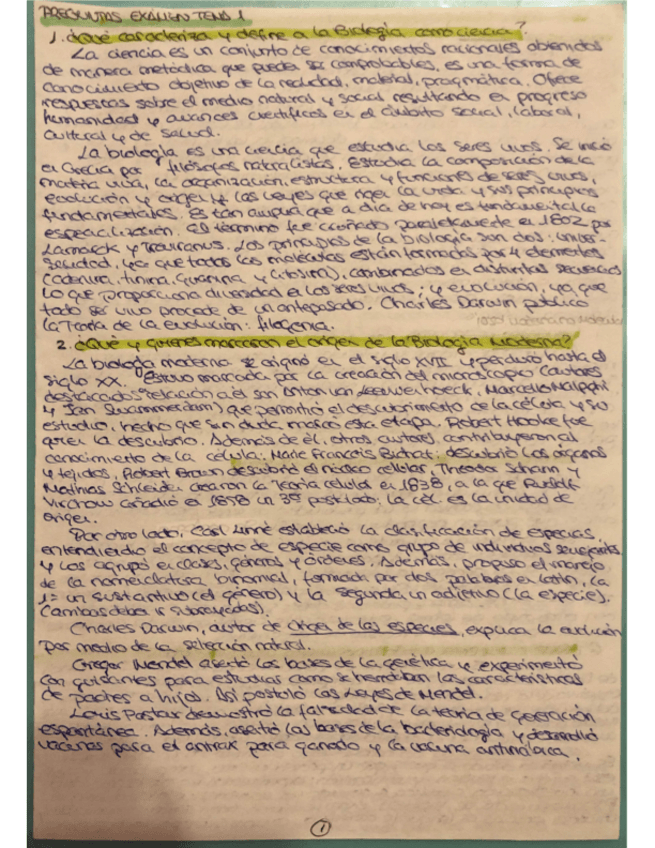 PREGUNTAS EXAMEN TEMA 1
1. ¿Qué caracteriza y define a la Biología como ciencia?
La ciencia es un conjunto de conocimientos racionales obtenidos
de manera metódica que pueda ser comprobables, es una forma de
conocimiento objetivo de la realidad, material, pragmática. Ofrece
respuestas sobre el medio natural y social resultando en progreso
humanidad y avances científicos en el ámbito social, laboral,
cultural y de salud.
La biología es una ciencia que estudia los seres vivos. Se inició
en Grecia por filósofos naturalistas. Estudia la composición de la
materia viva, la organización, estructura y funciones de seres vivos,
evolución y origen y las leyes que rigen la vida y sus principios
fundamentales. Es tan amplia que a día de hoy es fundamental la
especialización. El término fue acuñado paralelamente en 1802 por
Lamarck y Treviranus. Los principios de la biología son dos: univer-
salidad, ya que todas las moléculas están formadas por 4 elementos
(adenina, timina, guanina y citosina), combinados en distintas secuencias
lo que proporciona diversidad en los seres vivos; y evolución, ya que
todo ser vivo procede de un antepasado. Charles Darwin publicó
la Teoría de la Evolución: filogenia.
2. ¿Qué y quienes marcaron el origen de la Biología Moderna?
La biología moderna se originó en el siglo XVII y perduró hasta el
siglo XX. Estuvo marcada por la creación del microscopio (autores
destacados relación a él son Anton van Leeuwenhoeck, Marcello Malpighi
y Jan Swammerdam) que permitió el descubrimiento de la célula y su
estudio, hecho que sin duda marcó esta etapa. Robert Hooke fue
quien la descubrió. Además de él, otros autores contribuyeron al
conocimiento de la célula: Marie Francois Bichat: descubrió los órganos
y tejidos, Robert Brown descubrió el núcleo celular, Theodor Schann y
Mathias Schleiden crearon la Teoría celular en 1838, a la que Rudolf
Virchow añadió en 1858 un 3er postulado: la cél. es la unidad de
origen.
Por otro lado, Carl Linné estableció la clasificación de especies,
entendiendo el concepto de especie como grupo de individuos semejantes
y los agrupó en clases, géneros y órdenes. Además, propuso el manejo
de la nomenclatura binomial, formada por dos palabras en latín, la
1ª un sustantivo (el género) y la segunda un adjetivo (la especie).
(ambos deben ir subrayados).
Charles Darwin, autor de Origen de las especies, explica la evolución
por medio de la selección natural.
Gregor Mendel asentó las bases de la genética y experimentó
con guisantes para estudiar como se heredaban las características
de padres a hijos. Así postuló las Leyes de Mendel.
Louis Pasteur demostró la falsedad de la teoría de generación
espontánea. Además, asentó las bases de la bacteriología y desarrolló
vacunas para el antrax para ganado y la vacuna antirrábica.
1